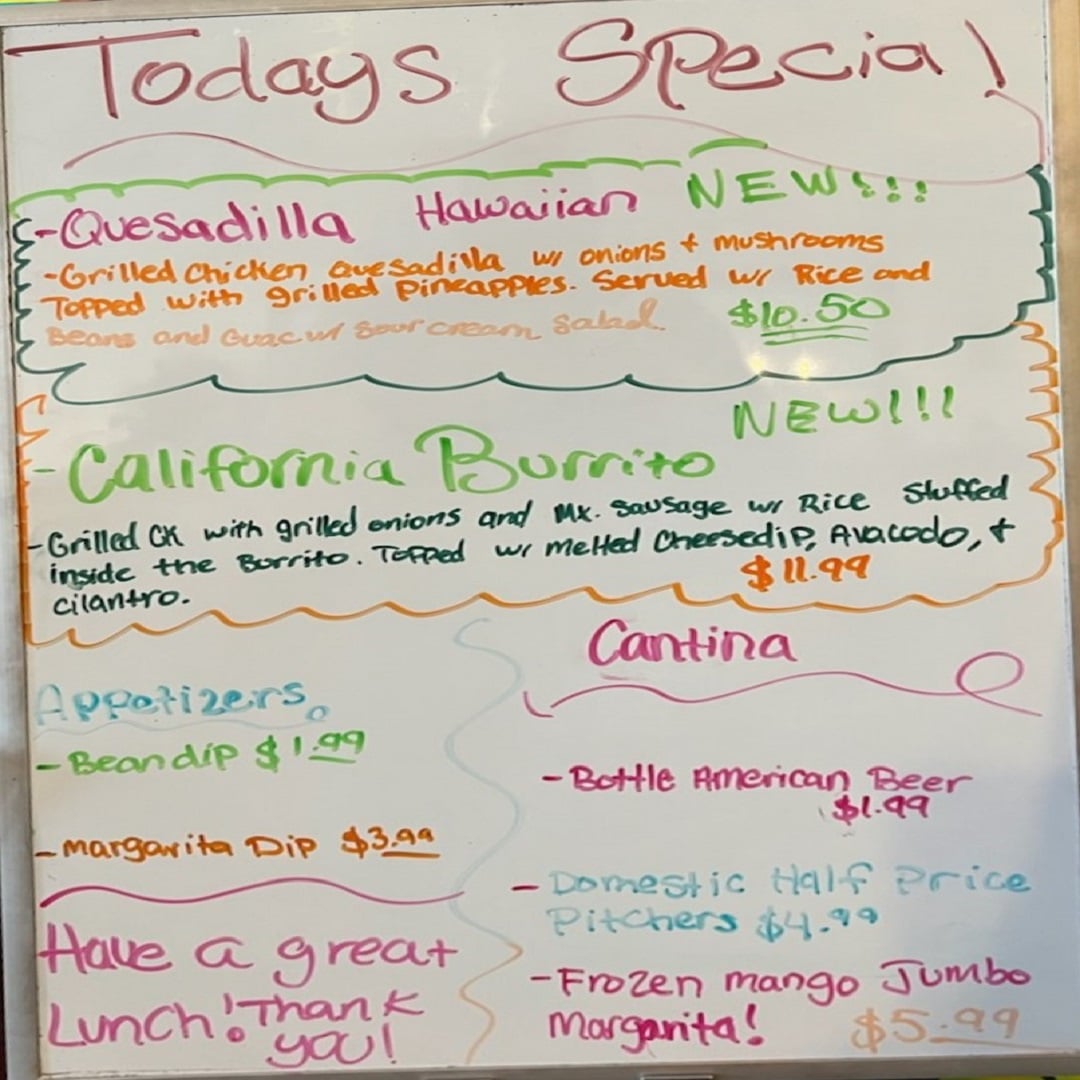 Todays Special
-Quesadilla Hawaiian NEW!!!
-Grilled Chicken Quesadilla w/ onions + mushrooms
Topped with grilled pineapples. Served w/ Rice and
Beans and Guac w/ Sour cream Salad. $10.50
NEW!!!
-California Burrito
-Grilled CK with grilled onions and Mx. Sausage w/ Rice Stuffed
inside the Burrito. Topped w/ Melted Cheesedip, Avacodo, +
cilantro. $11.99
Appetizers
-Bean dip $1.99
-margarita Dip $3.99
Have a great
Lunch! Thank
you!
Cantina
-Bottle American Beer
$1.99
-Domestic Half Price
Pitchers $4.99
-Frozen mango Jumbo
Margarita! $5.99